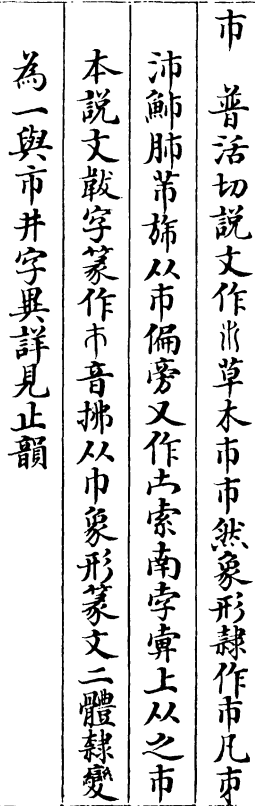 巿　普活切說文作𣎵草木巿巿然象形隸作巿凡
沛䰽肺芾旆从巿偏旁又作索南孛上从之巿
本說文字篆作巿音拂从巾象形篆文二體隸變
為一與市井字異詳見止韻